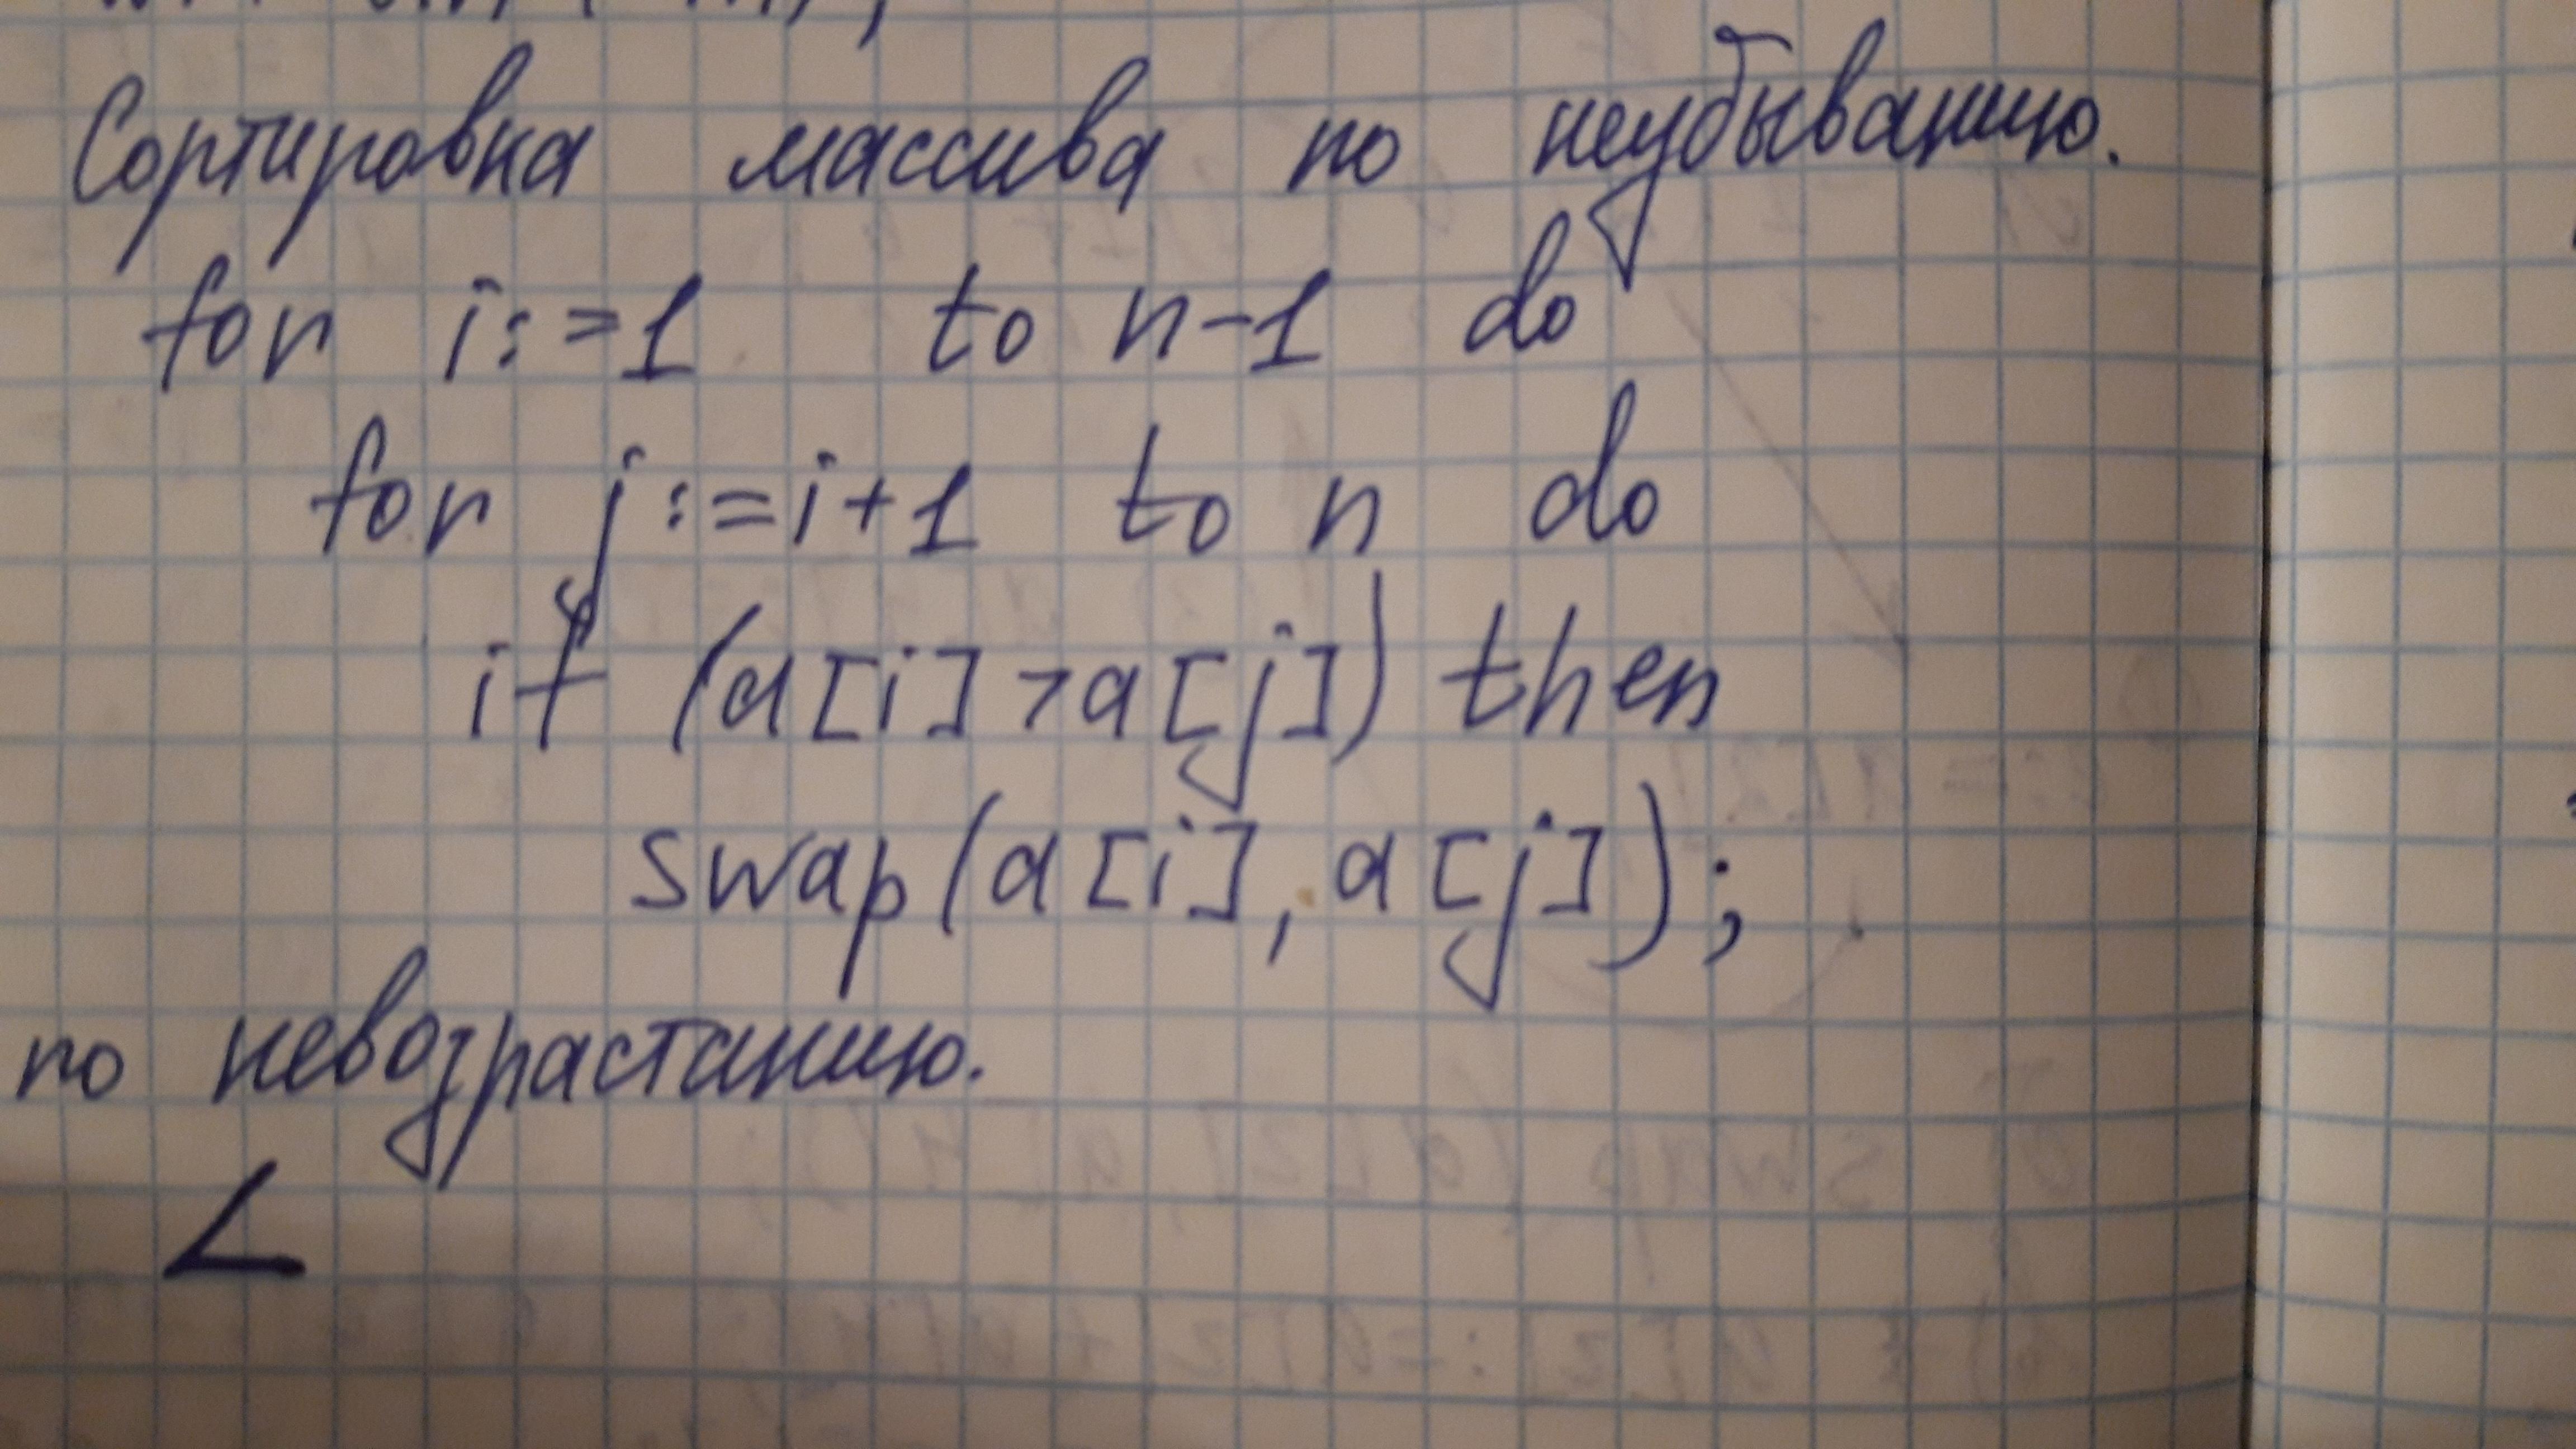 Сортировка массива по неубыванию.
for i:=1 to n-1 do
for j:=i+1 to n do
if (a[i]>a[j]) then
swap(a[i], a[j]);
по невозрастанию.
<